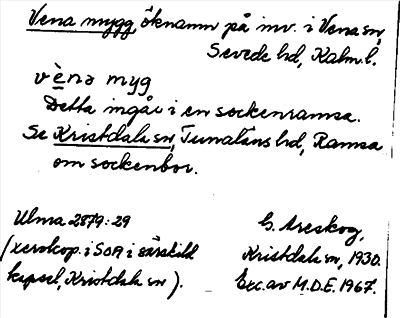 Vena mygg, öknamn på inv. i Vena sn,
Sevede hd, Kalm. l.
vèna myg
Detta ingår i en sockenramsa.
Se Kristdala sn, Tunaläns hd, Ramsa
om sockenbor.
Ulma 2879:29
(xerokop. i SOA i särskild
kapsel, Kristdala sn).
G. Areskog,
Kristdala sn, 1930.
Exc. av M.D.E. 1967.